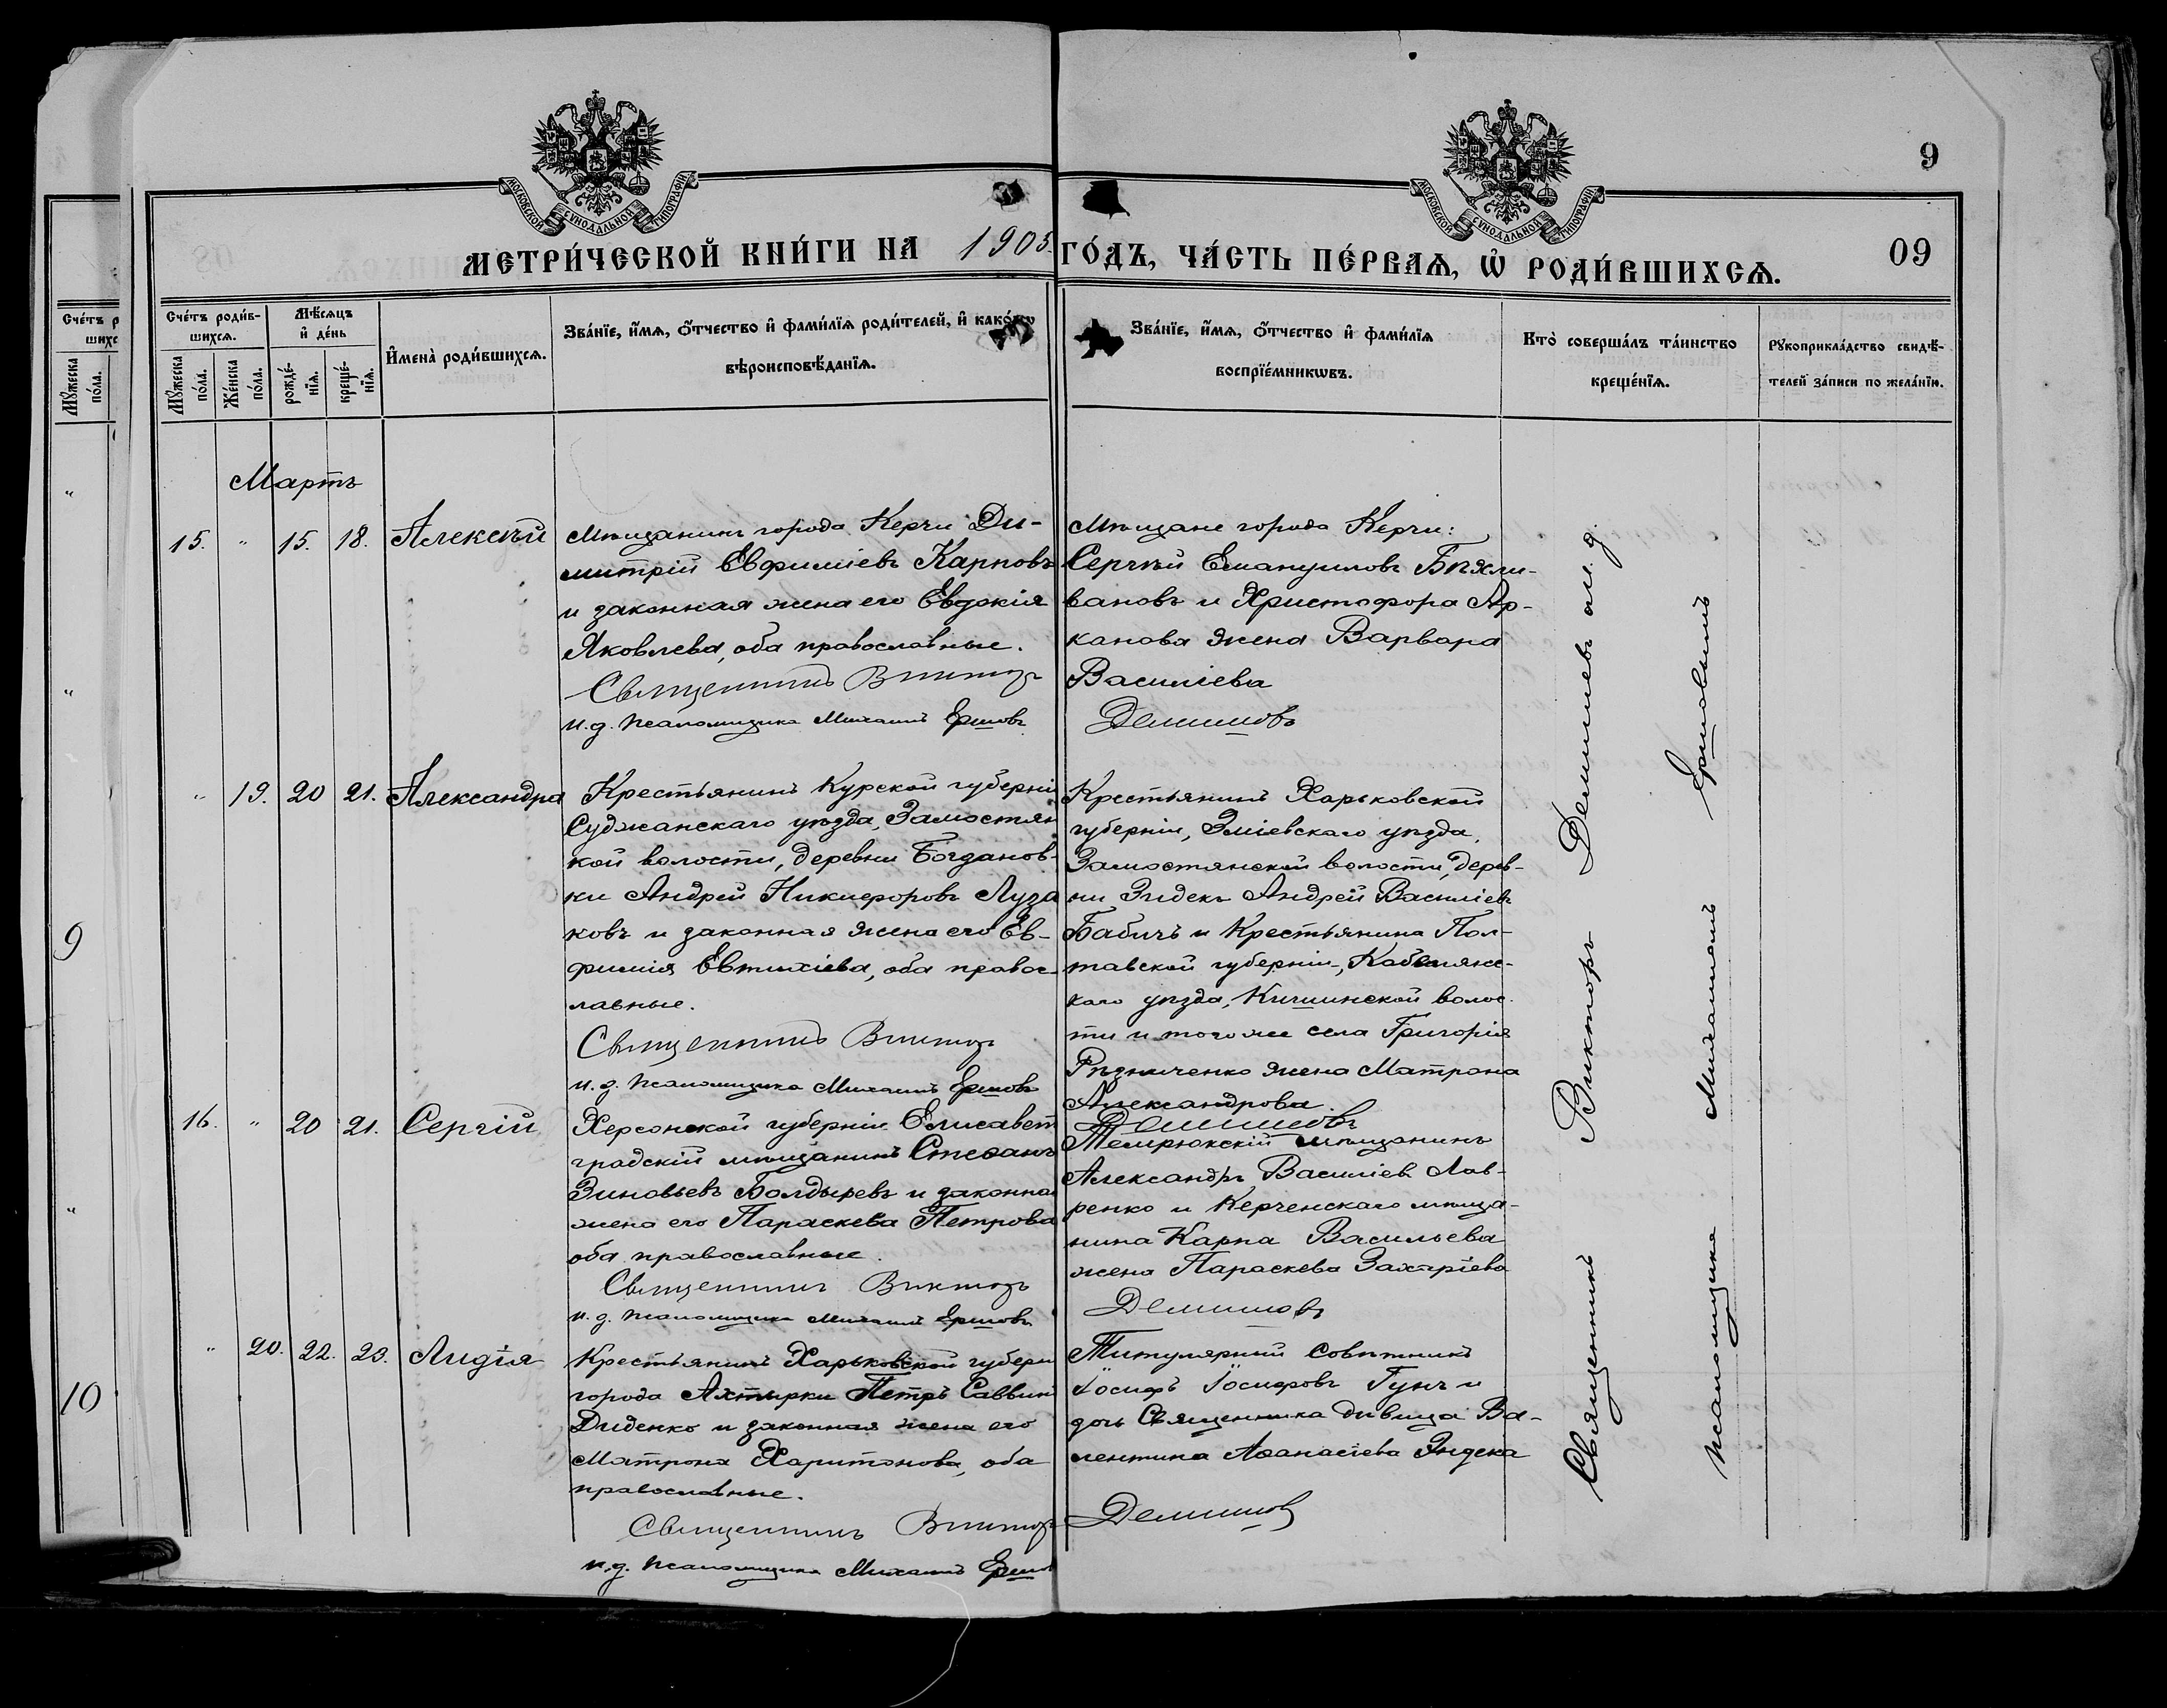 9
МОСКОВСКОЙ СУНОДАЛЬНОЙ ТИПОГРАФІИ
МОСКОВСКОЙ СУНОДАЛЬНОЙ ТИПОГРАФІИ
МЕТРИ́ЧЕСКОЙ КНИ́ГИ НА 1905 ГО́ДЪ, ЧА́СТЬ ПЕ́РВАѦ, Ѡ҆ РОДИ́ВШИХСѦ.
09
Сче́тъ роди́в-
шихсѧ.
Мѣ́сѧцъ
и҆ де́нь
Мꙋ́жеска по́ла.
Же́нска по́ла.
рожде́-
нїѧ.
креще́-
нїѧ.
И҆мена̀ роди́вшихсѧ.
Зва́нїе, и҆́мѧ, ѻ҆́тчество и҆ фами́лїѧ роди́телей, и҆ како́гѡ
вѣроисповѣ́данїѧ.
Зва́нїе, и҆́мѧ, ѻ҆́тчество и҆ фами́лїѧ
воспрїе́мникѡвъ.
Кто̀ соверша́лъ та́инство
креще́нїѧ.
Рꙋкоприкла́дство свидѣ́-
телей за́писи по жела́нїю.
Мартъ
15. " 15. 18. Алексѣй
Мѣщанинъ города Керчи Ди-
митрій Евфиміевъ Карповъ
и законная жена его Евдокія
Яковлева, оба православные.
Священникъ Викторъ
и.д. псаломщика Михаилъ Ершовъ
Мѣщане города Керчи:
Сергѣй Емануиловъ Бѣхли-
вановъ и Христофора Ар-
канова жена Варвара
Василіева
Демишевъ
" 19. 20 21. Александра
Крестьянинъ Курской губерніи
Суджанскаго уѣзда, Замостян
кой волости, деревни Богданов-
ки Андрей Никифоровъ Луза
ковъ и законная жена его Ев-
фимія Евтихіева, оба правос-
лавные.
Священникъ Викторъ
и.д. псаломщика Михаилъ Ершовъ
Крестьянинъ Харьковской
губерніи, Зміевскаго уѣзда,
Замостянской волости, дерев-
ни Андрей Василіевъ
Бабичъ и Крестьянина Пол-
тавской губерніи, Кобеляк-
каго уѣзда, Кишинской волос-
ти и того же села Григорія
Рѣзниченко жена Матрона
Александрова
Демишевъ
16. " 20 21. Сергій
Херсонской губерніи Елисавет
градскій мѣщанинъ Стефанъ
Зиновьевъ Болдыревъ и законна
жена его Параскева Петрова
оба православные.
Священникъ Викторъ
и.д. псаломщика Михаилъ Ершовъ
Темрюкскій мѣщанинъ
Александръ Василіевъ Лав-
ренко и Керченскаго мѣща-
нина Карпа Васильева
жена Параскева Захаріева
Демишевъ
" 20. 22. 23. Лидія
Крестьянинъ Харьковской губерн
города Ахтырки Петръ Саввинъ
Диденко и законная жена его
Матрона Харитонова, оба
православные.
Священникъ Викторъ
и.д. псаломщика Михаилъ Ершовъ
Титулярный Совѣтникъ
Іосифъ Іосифовъ Гунъ и
дочь Священника дѣвица Ва-
лентина Аѳанасіева
Демишевъ
Священникъ Викторъ Демишевъ
псаломщика Михаиломъ Ершовымъ
Сче́тъ р
шихс
Мꙋ́жеска по́ла.
"
"
9
"
10